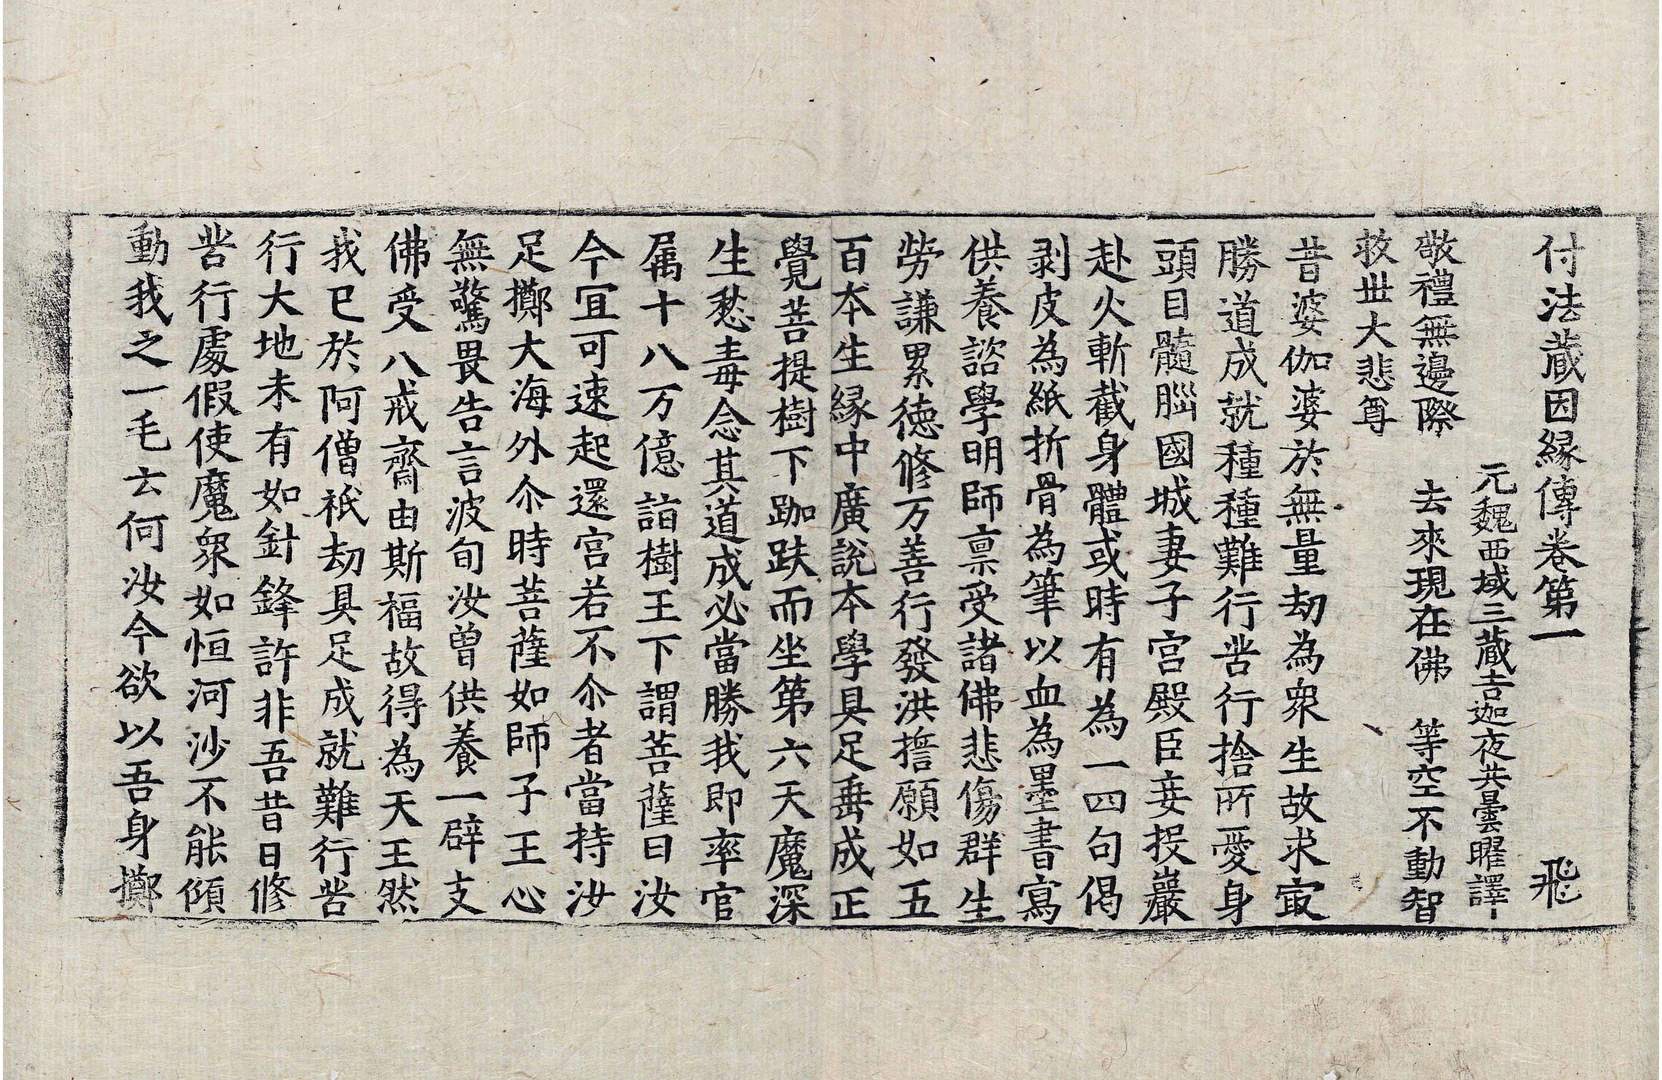 付法藏因縁傳卷第一　飛
元魏西域三藏吉迦夜共曇曜譯
敬禮無邊際　去來現在佛　等空不動智
救世大悲尊
昔婆伽婆於無量劫為衆生故求㝡
勝道成就種種難行苦行捨所愛身
頭目髓腦國城妻子宮殿臣妾投巖
赴火斬截身體或時有為一四句偈
剥皮為紙折骨為筆以血為墨書寫
供養諮學明師禀受諸佛悲傷群生
勞謙累德修万善行發洪誓願如五
百本生縁中廣說本學具足垂成正
覺菩提樹下跏趺而坐第六天魔深
生愁毒念其道成必當勝我即率官
属十八万億詣樹王下謂菩薩曰汝
今宜可速起還宮若不尒者當持汝
足擲大海外尒時菩薩如師子王心
無驚畏告言波旬汝曽供養一辟支
佛受八戒齋由斯福故得為天王然
我已於阿僧祇劫具足成就難行苦
行大地未有如針鋒許非吾昔日修
苦行處假使魔衆如恒河沙不能傾
動我之一毛云何汝今欲以吾身擲